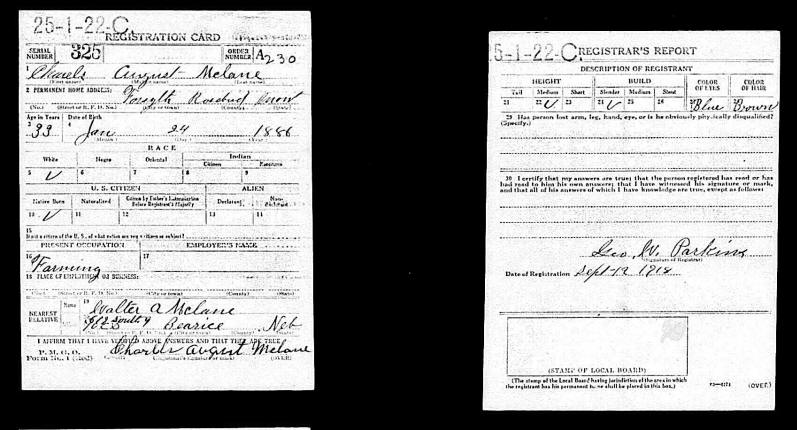 25-1-22-C.
REGISTRATION CARD
SERIAL NUMBER 325 ORDER NUMBER A230
1 Charels August Mclane
2 PERMANENT HOME ADDRESS: Forsyth Rosebud Mont
(No.) (Street or R. F. D. No.) (City or town) (County) (State)
Age in Years Date of Birth
3 33 4 Jan 24 1886
RACE
White Negro Oriental Indian
Citizen Noncitizen
5 ✓ 6 7 8 9
U. S. CITIZEN ALIEN
Native Born Naturalized Citizen by Father's Naturalization Before Registrant's Majority Declarant Non-declarant
10 ✓ 11 12 13 14
15
If not a citizen of the U. S., of what nation are you a citizen or subject?
PRESENT OCCUPATION EMPLOYER'S NAME
16 Farming 17
18 PLACE OF EMPLOYMENT OR BUSINESS:
(No.) (Street or R. F. D. No.) (City or town) (County) (State)
NEAREST RELATIVE Name 19 Walter A Mclane
South 9 Bearice Neb
I AFFIRM THAT I HAVE VERIFIED ABOVE ANSWERS AND THAT THEY ARE TRUE
P. M. G. O.
Form No. 1 (Red) Charles August Mclane
(Registrant's signature or mark) (OVER)
5-1-22-C. REGISTRAR'S REPORT
DESCRIPTION OF REGISTRANT
HEIGHT BUILD COLOR OF EYES COLOR OF HAIR
Tall Medium Short Slender Medium Stout
21 22 ✓ 23 24 ✓ 25 26 27 Blue 28 Brown
29 Has person lost arm, leg, hand, eye, or is he obviously physically disqualified?
(Specify.)
30 I certify that my answers are true; that the person registered has read or has
had read to him his own answers; that I have witnessed his signature or mark,
and that all of his answers of which I have knowledge are true, except as follows:
Geo. W. Parkins
(Signature of Registrar)
Date of Registration Sept-12 1918
(STAMP OF LOCAL BOARD)
(The stamp of the Local Board having jurisdiction of the area in which
the registrant has his permanent home shall be placed in this box.)
(OVER)